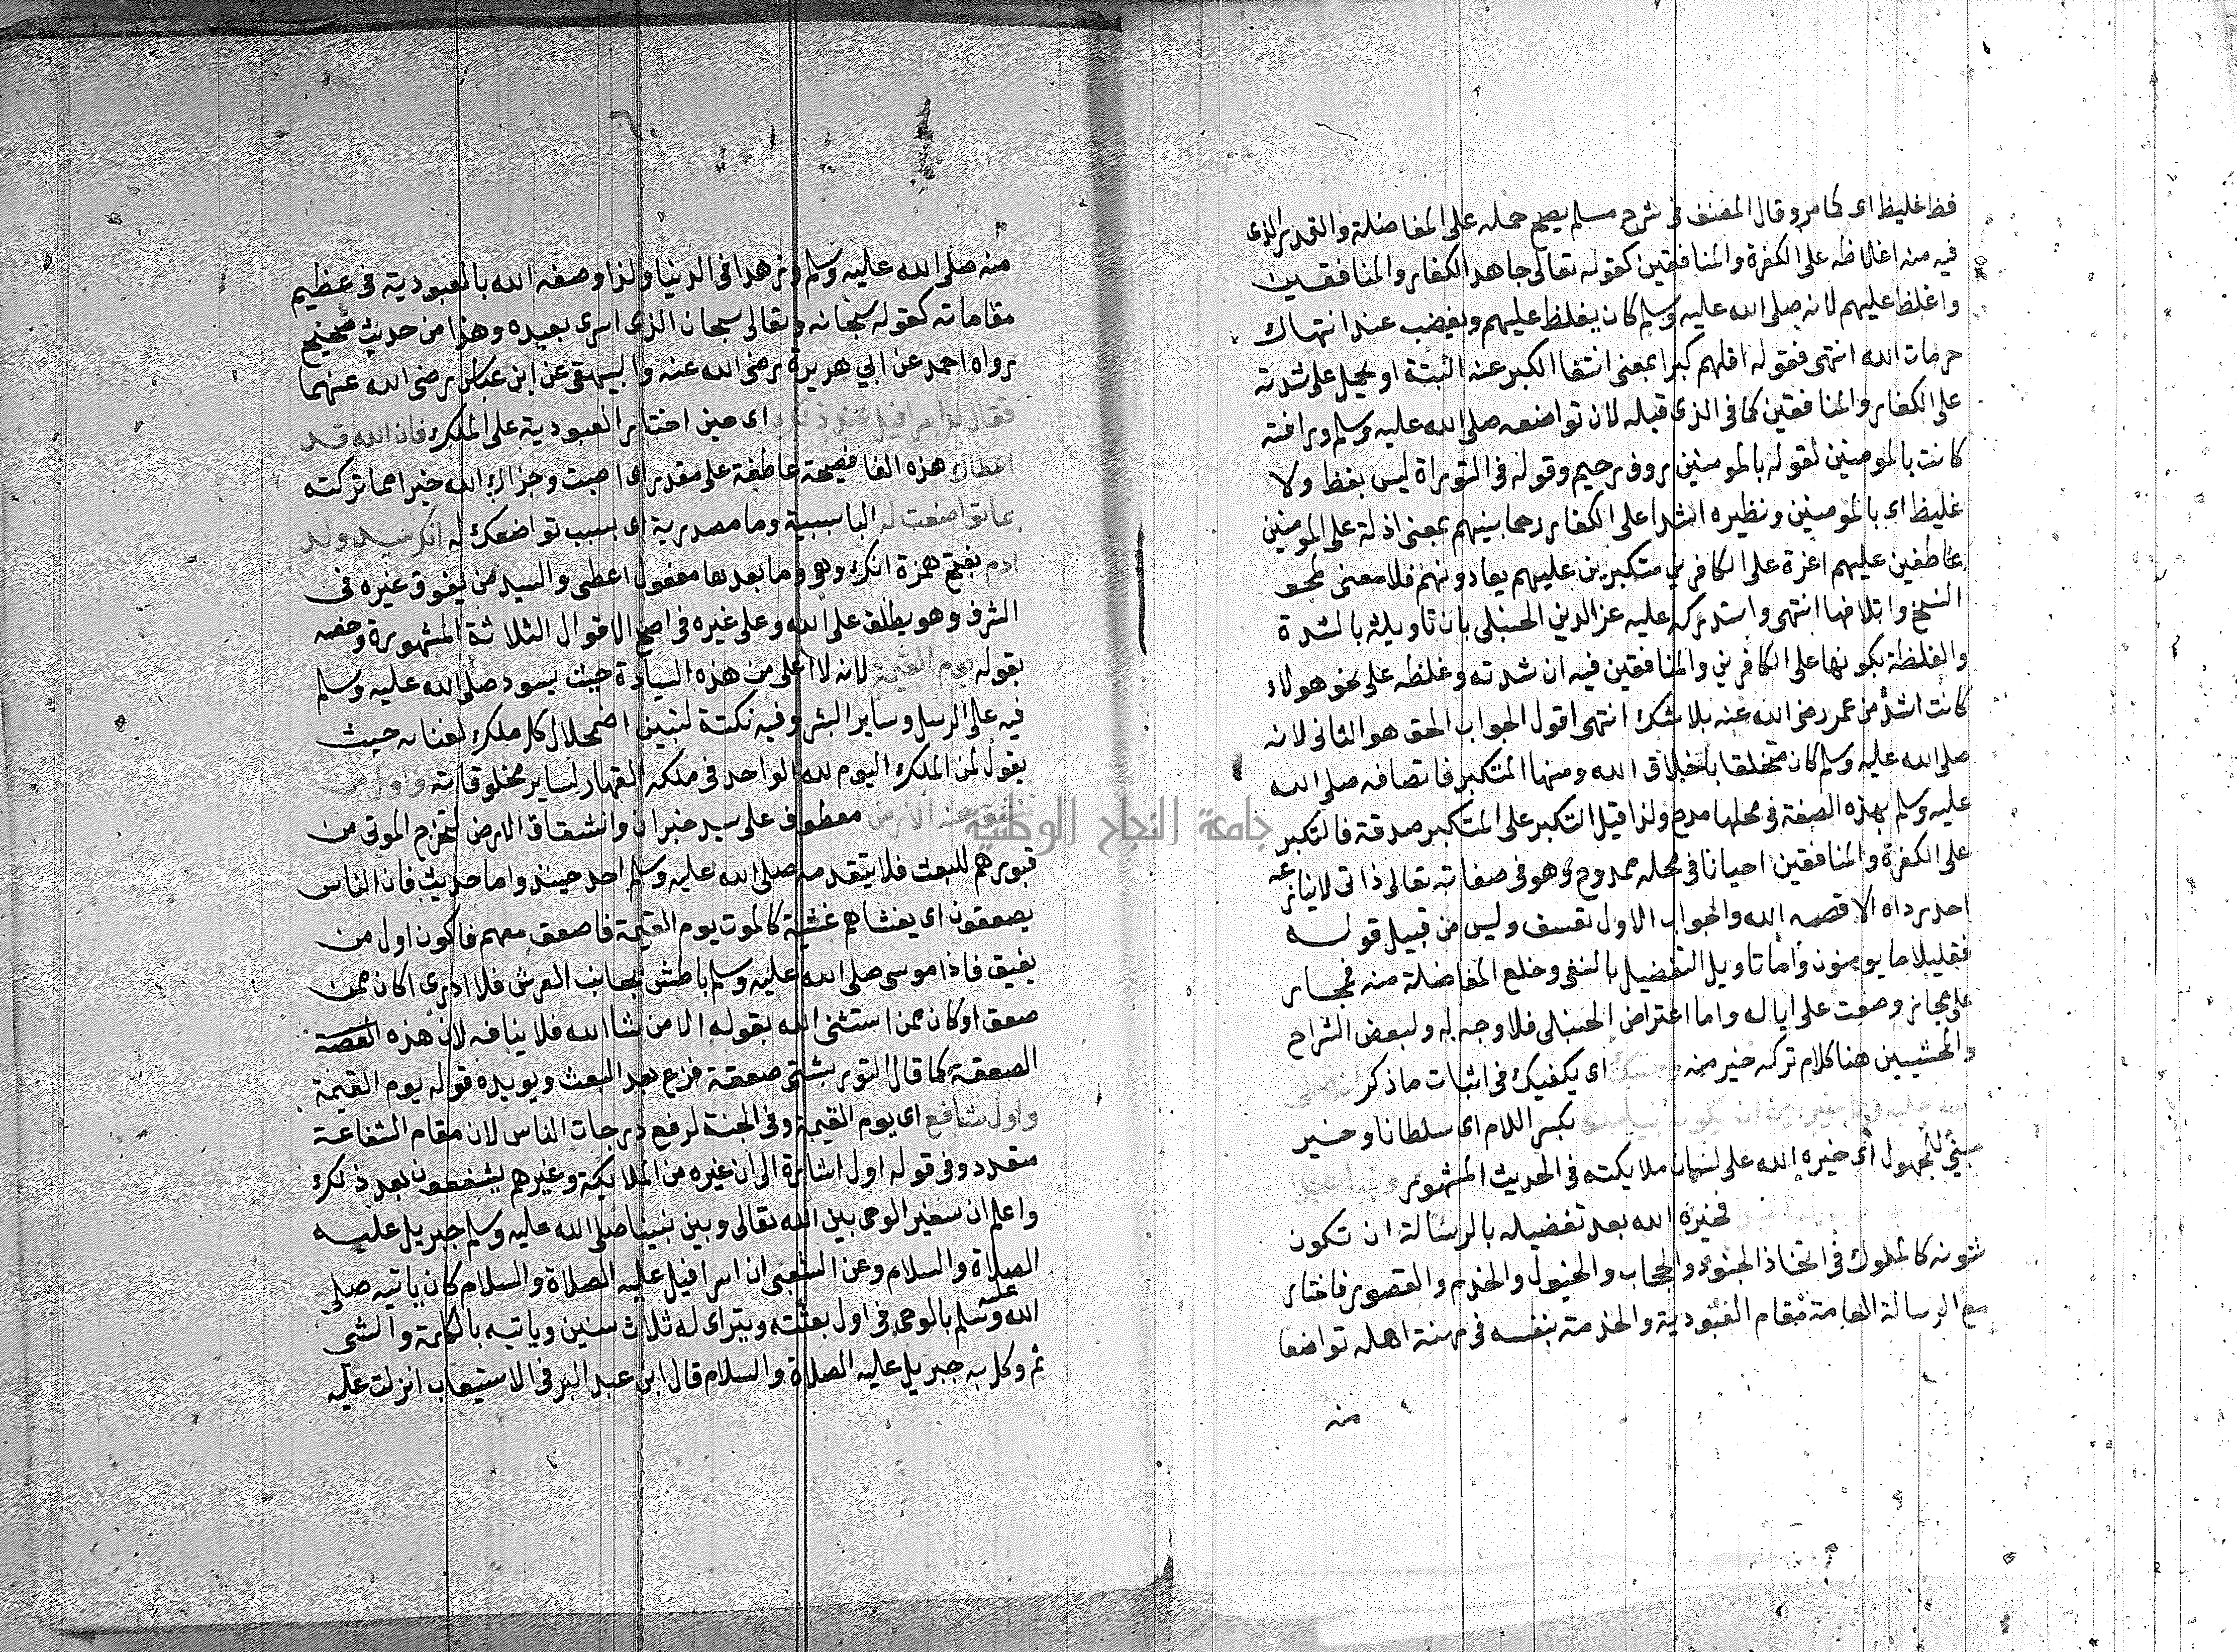 فظ غليظ اى كما مر وقال المصنف فى شرح مسلم يصح حمله على المفاضلة والقدر الذى
فيه منه اغلاظه على الكفرة والمنافقين كقوله تعالى جاهد الكفار والمنافقين
واغلظ عليهم لانه صلى الله عليه وسلم كان يغلظ عليهم ويغضب عند انتهاك
حرمات الله انتهى فقوله اقلهم كبرا بمعنى انتفا الكبر عنه البتة او يحمل على شدته
على الكفار والمنافقين كما فى الذى قبله لان تواضعه صلى الله عليه وسلم ورافته
كانت بالمومنين لقوله بالمومنين روف رحيم وقوله فى التوراة ليس بفظ ولا
غليظ اى بالمومنين ونظيره اشدا على الكفار رحما بينهم بمعنى اذلة على المومنين
عاطفين عليهم اعزة على الكافرين متكبرين عليهم يعادونهم فلا معنى لمحو
النسخ واتلافها انتهى واستدركه عليه عز الدين الحنبلى بان تاويله بالشدة
والغلظة بكونها على الكافرين والمنافقين فيه ان شدته وغلظه على نحو هولاء
كانت اشد من عمر رضى الله عنه بلا شك انتهى اقول الجواب الحق هو الثانى لانه
صلى الله عليه وسلم كان متخلقا باخلاق الله ومنها المتكبر فاتصافه صلى الله
عليه وسلم بهذه الصفة فى محلها مدح ولذا قيل التكبر على المتكبر صدقة فالتكبر
على الكفرة والمنافقين احيانا فى محله ممدوح وهو فى صفاته تعالى ذاتى لا ينازعه
احد رداه الا قصمه الله والجواب الاول تعسف وليس من قبيل قوله
فقليلا ما يومنون واما تاويل التفضيل بالنفى وخلع المفاضلة منه فمجار
على مجاز وضغث على ابالة واما اعتراض الحنبلى فلا وجه له ولبعض الشراح
والمحشيين هنا كلام تركه خير منه وحسبك اى يكفيك فى اثبات ما ذكر انه صلى
الله عليه وسلم خير بين ان يكون نبيا ملكا بكسر اللام اى سلطانا وخير
مبني للمجهول اى خيره الله على لسان ملايكته فى الحديث المشهور
فخيره الله بعد تفضيله بالرسالة ان تكون
شئونه كالملوك فى اتخاذ الجنود والحجاب والخيول والخدم والقصور فاختار
مع الرسالة العامة مقام العبودية والخدمة بنفسه فى مهنة اهله تواضعا
منه
منه صلى الله عليه وسلم وزهدا فى الدنيا ولذا وصفه الله بالعبودية فى عظيم
مقاماته كقوله سبحانه وتعالى سبحان الذى اسرى بعبده وهذا من حديث صحيح
رواه احمد عن ابي هريرة رضى الله عنه والبيهقى عن ابن عباس رضى الله عنهما
فقال له اسرافيل عند ذلك اى حين اختار العبودية على الملك فان الله قد
اعطاك هذه الفا فصيحة عاطفة على مقدر اى اصبت وجزاك الله خيرا مما تركته
بما تواضعت له البا سببية وما مصدرية اى بسبب تواضعك له انك سيد ولد
ادم بفتح همزة انك وهو وما بعدها مفعول اعطى والسيد من يفوق غيره فى
الشرف وهو يطلق على الله وعلى غيره فى اصح الاقوال الثلاثة المشهورة وخصه
بقوله يوم القيمة لانه لا اعلى من هذه السيادة حيث يسود صلى الله عليه وسلم
فيه على الرسل وساير البشر وفيه نكتة لتبين اضمحلال كل ملك لفنائه حيث
يقول لمن الملك اليوم لله الواحد فى ملكه القهار لساير مخلوقاته واول من
تنشق عنه الارض معطوف على سيد خبر ان وانشقاق الارض لتخرج الموتى من
قبورهم للبعث فلا يتقدمه صلى الله عليه وسلم احد حينئذ واما حديث فان الناس
يصعقون اى يغشاهم غشية كالموت يوم القيمة فاصعق معهم فاكون اول من
يفيق فاذا موسى صلى الله عليه وسلم باطش بجانب العرش فلا ادرى اكان ممن
صعق او كان ممن استثنى الله بقوله الا من شا الله فلا ينافه لان هذه القصة
الصعقة كما قال التوربشتى صعقة فزع بعد البعث ويويده قوله يوم القيمة
واول شافع اى يوم القيمة وفى الجنة لرفع درجات الناس لان مقام الشفاعة
متعدد وفى قوله اول اشارة الى ان غيره من الملايكة وغيرهم يشفعون بعد ذلك
واعلم ان سفير الوحى بين الله تعالى وبين نبينا صلى الله عليه وسلم جبريل عليه
الصلاة والسلام وعن الشعبى ان اسرافيل عليه الصلاة والسلام كان ياتيه صلى
الله عليه وسلم بالوحى فى اول بعثته ويتراى له ثلاث سنين وياتيه بالكلمة والشى
ثم وكل به جبريل عليه الصلاة والسلام قال ابن عبد البر فى الاستيعاب انزلت عليه
جامعة النجاح الوطنية